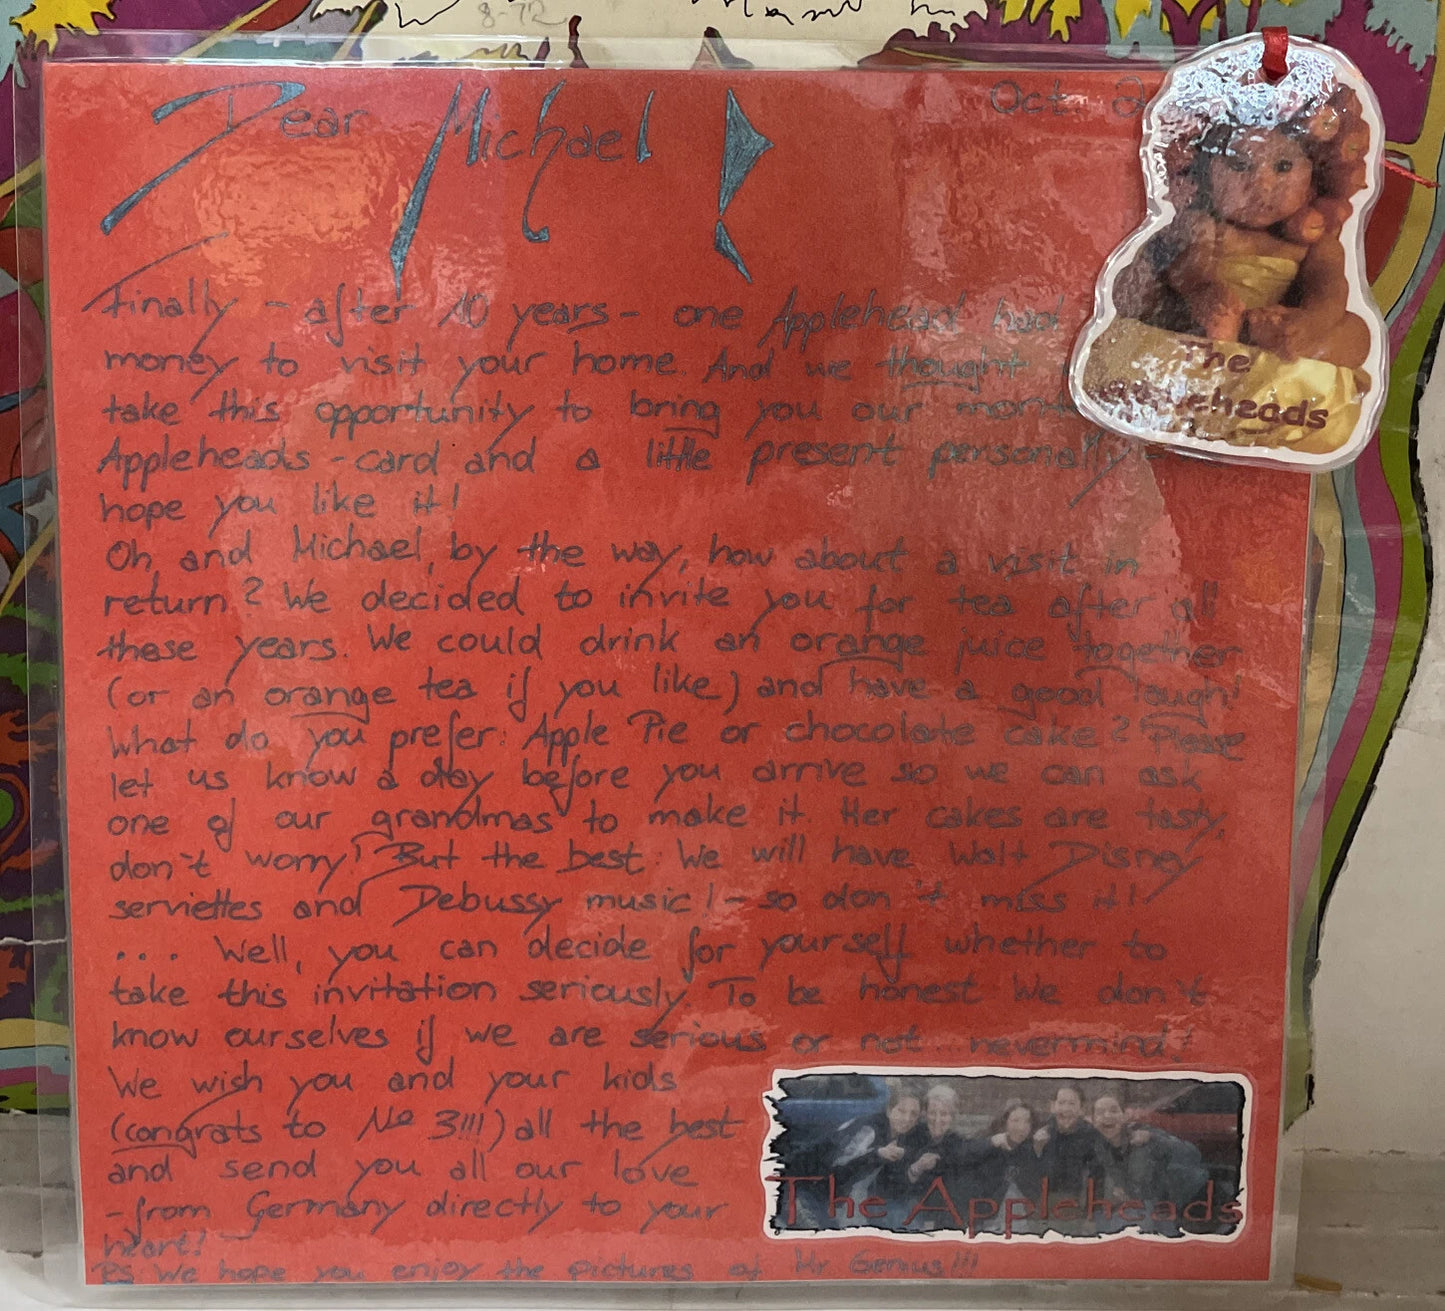 8-72
Dear Michael!
Oct
Finally - after 10 years - one Applehead had
money to visit your home. And we thought
take this opportunity to bring you our
Appleheads - card and a little present personally
hope you like it!
Oh, and Michael, by the way, how about a visit in
return? We decided to invite you for tea after all
these years. We could drink an orange juice together
(or an orange tea if you like) and have a good laugh!
What do you prefer: Apple Pie or chocolate cake? Please
let us know a day before you arrive so we can ask
one of our grandmas to make it. Her cakes are tasty,
don't worry! But the best: We will have Walt Disney
serviettes and Debussy music! - so don't miss it!
.... Well, you can decide for yourself whether to
take this invitation seriously. To be honest we don't
know ourselves if we are serious or not... nevermind!
We wish you and your kids
(congrats to No 3!!!) all the best
and send you all our love
- from Germany directly to your
heart!
PS: We hope you enjoy the pictures of Mr Genius!!!
The
Appleheads
The Appleheads